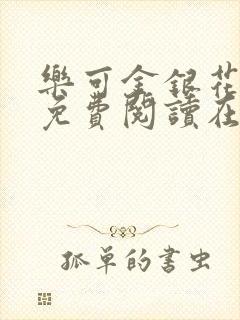 樂可金銀花
免費閱讀在
孤單的書虫